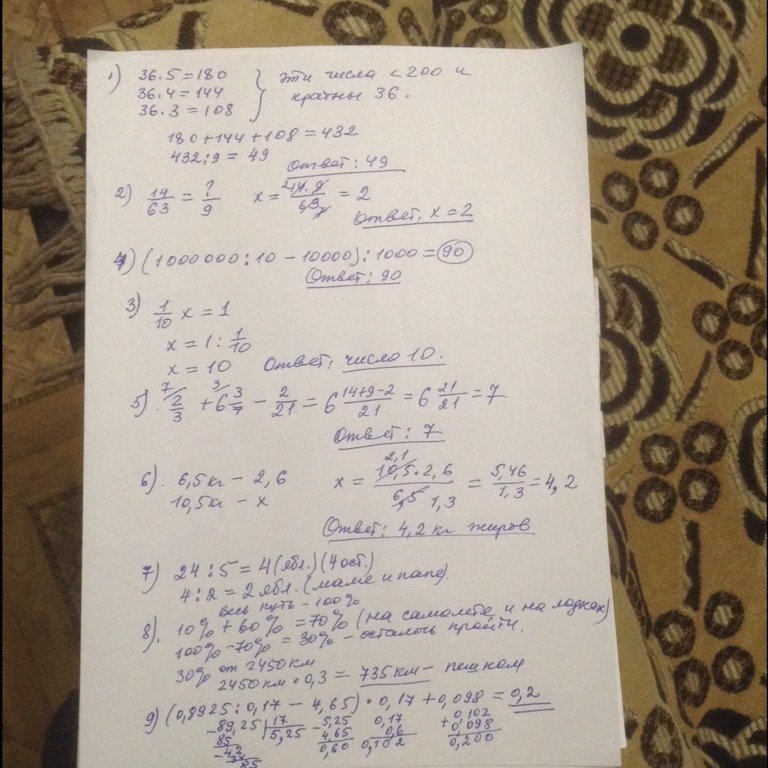 1) 36·5=180 } эти числа <200 и
36·4=144 кратны 36.
36·3=108
180+144+108=432
432:9 = 49
Ответ: 49
2) 14/63 = ?/9 x = 14·9/63 = 2
Ответ: x=2
4) (1000000:10 – 10000):1000 = 90
Ответ: 90
3) 1/10 x = 1
x = 1 : 1/10
x = 10 Ответ: число 10.
5). 2/3 + 6 3/7 – 2/21 = 6 14+9–2/21 = 6 21/21 = 7
Ответ: 7
6). 6,5кг – 2,6 x = 10,5·2,6/6,5 = 5,46/1,3 = 4,2
10,5кг – x
Ответ: 4,2 кг жиров
7) 24:5 = 4(ябл.)(4ост.)
4:2 = 2 ябл. (маме и папе).
Весь путь – 100%
8). 10% + 60% = 70% (на самолете и на лодках)
100% – 70% = 30% – осталось пройти.
30% от 2450км
2450км · 0,3 = 735км – пешком
9) (0,8925:0,17 – 4,65)·0,17+0,098 = 0,2
89,25 | 17 5,25 0,17 0,102
85 5,25 4,65 0,6 + 0,098
42 0,60 0,102 0,200
34
85